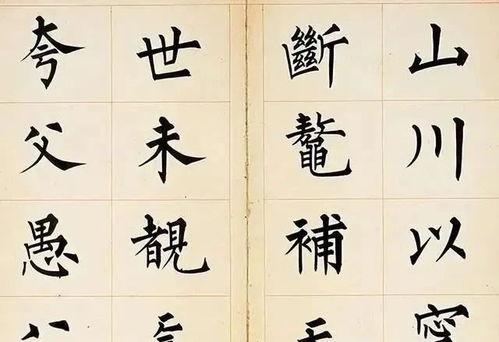 山川以
斷鼇補
世未覩
夸父愚